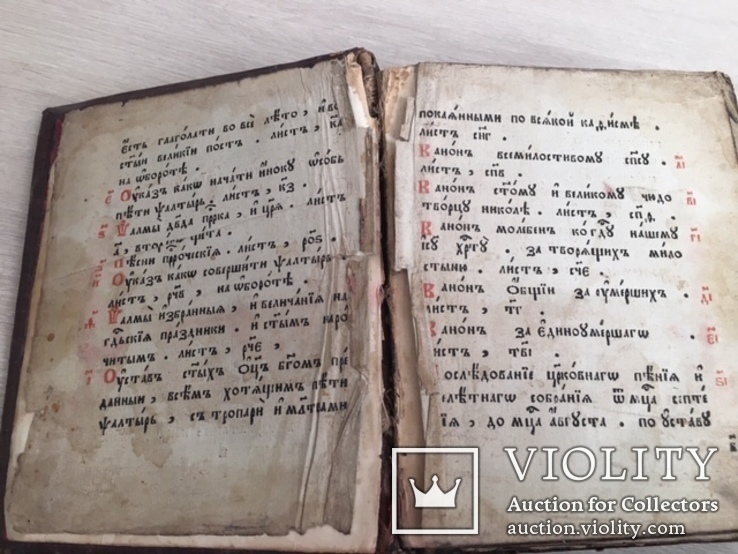 є҆сть глаго́лати во всѐ лѣ́то, и҆ во
ст҃ы́й вели́кїй по́стъ. ли́стъ, к҃а
на ѡ҆боро́тѣ.
Оу҆ка́зъ ка́кѡ нача́ти и҆́ноку ѡ҆со́бь
пѣ́ти ѱалты́рь. ли́стъ, к҃з.
Ѱалмы̀ дв҃да прⷪ҇рка, и҆ цр҃ѧ̀. ли́стъ
а҃, второ́е чи́сла.
Пѣ́сни прⷪ҇ро́ческїѧ. ли́стъ, р҃оѕ.
Оу҆ка́зъ ка́кѡ соверши́ти ѱалты́рь.
ли́стъ, р҃чв, на ѡ҆боро́тѣ.
Ѱалмы̀ и҆збра́нныѧ, и҆ велича́нїѧ на
гдⷭ҇ьскїѧ пра́здники. и҆ ст҃ы́мъ наро
чи́тымъ. ли́стъ, с҃че.
Оу҆ста́въ ст҃ы́хъ ѻ҆ц҃ъ бг҃омъ пре
да́нный, всѣ́мъ хотѧ́щимъ пѣ́ти
ѱалты́рь, съ тропарѝ и҆ мл҃твами
покаѧ́нными по всѧ́кой каѳи́смѣ.
ли́стъ с҃нг.
Кано́нъ всеми́лостивому сп҃су.
ли́стъ, с҃пв.
Кано́нъ ст҃о́му и҆ вели́кому чюдо
тво́рцу нико́лѣ. ли́стъ, с҃пѳ.
Кано́нъ молбе́нъ ко гдⷭ҇у на́шему
і҆с҃у хрⷭ҇ту̀. за творѧ́щихъ ми́ло
стыню. ли́стъ, с҃че.
Кано́нъ ѻ҆́бщїй за ᲂу҆ме́ршихъ.
ли́стъ, т҃г.
Кано́нъ за є҆диноᲂуме́ршаго
ли́стъ, т҃ві.
Послѣ́дованїе цр҃ко́внагѡ пѣ́нїѧ и҆
лѣ́тнагѡ собра́нїѧ ѿ мцⷭ҇а септе́
їѧ, до мцⷭ҇а а҆́вгуста. по ᲂу҆ста́ву
VIOLITY
Auction for Collectors
auction.violity.com